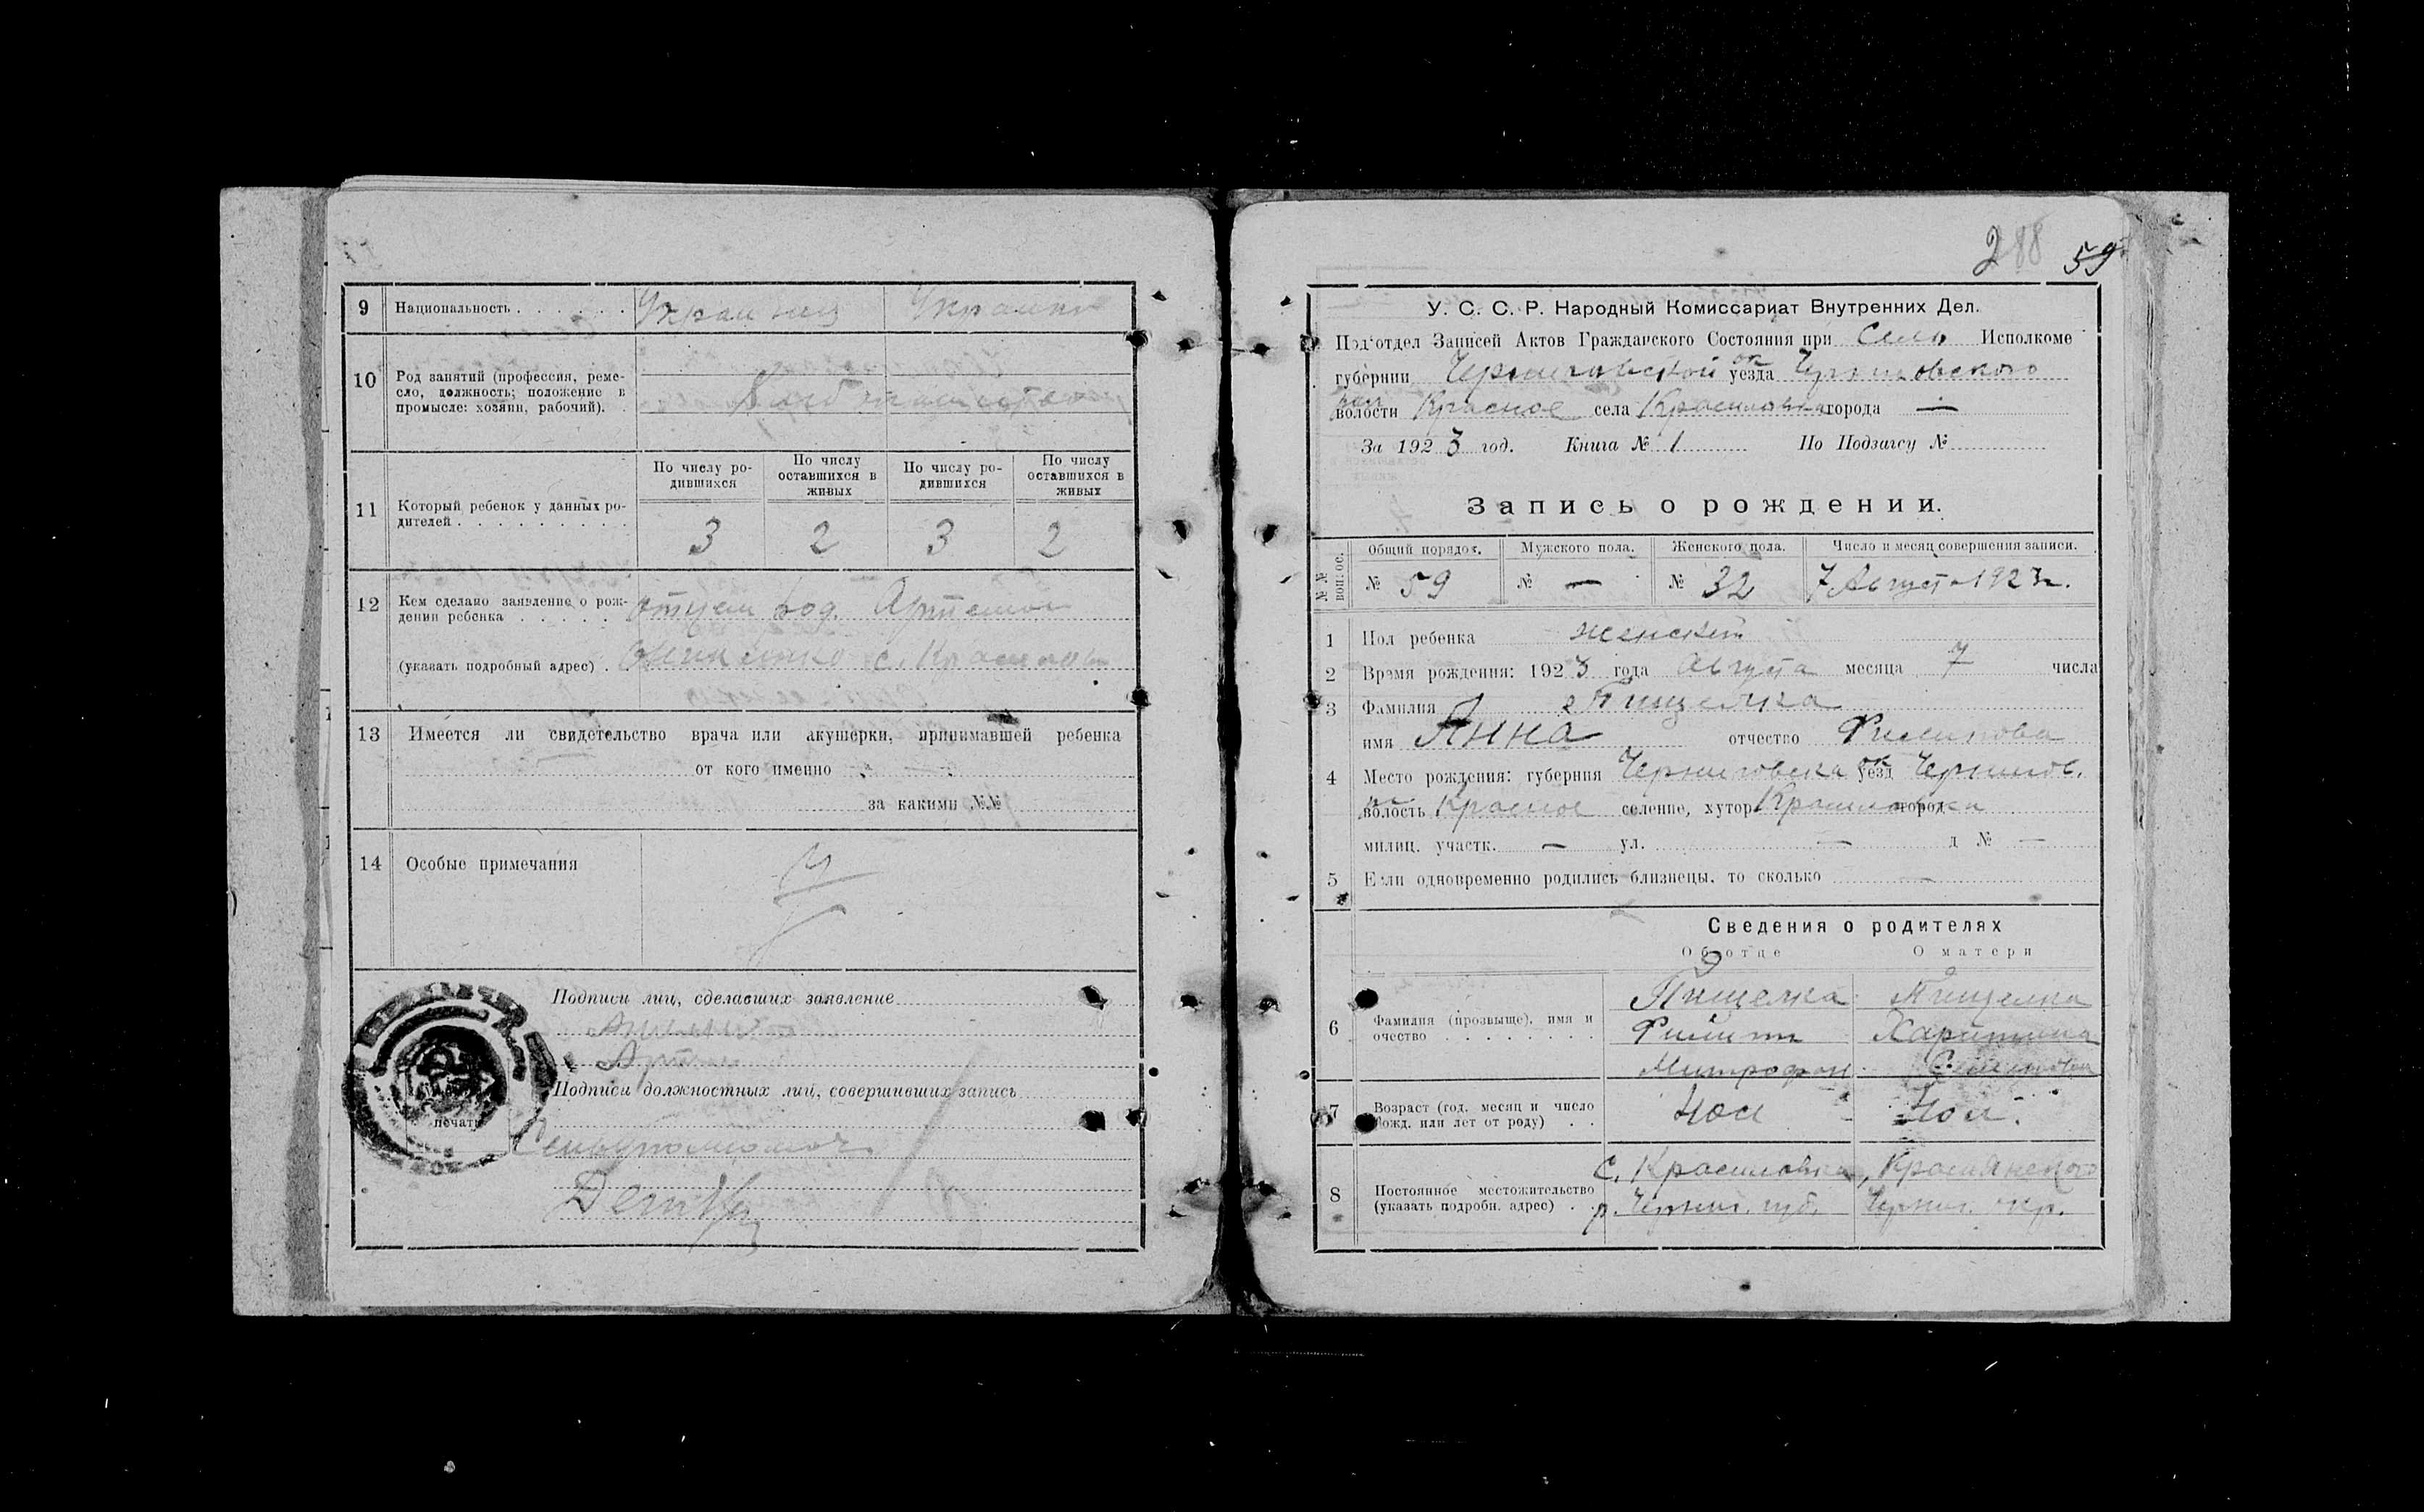 9 Национальность . . . . . . Украинец Украинка
10 Род занятий (профессия, реме-
сло, должность; положение в
промысле: хозяин, рабочий). Хлебопашество
11 Который ребенок у данных ро-
дителей . . . . . . . . .
По числу ро-
дившихся
По числу
оставшихся в
живых
По числу ро-
дившихся
По числу
оставшихся в
живых
3 2 3 2
12 Кем сделано заявление о рож-
дении ребенка . . . . . отцем род. Артемом
(указать подробный адрес) . с. Красиловка
13 Имеется ли свидетельство врача или акушерки, принимавшей ребенка
от кого именно
за какими №№
14 Особые примечания
Подписи лиц, сделавших заявление
Подписи должностных лиц, совершивших запись
печать
288 59
У. С. С. Р. Народный Комиссариат Внутренних Дел.
Подотдел Записей Актов Гражданского Состояния при Сель Исполкоме
губернии Черниговской ок уезда Черниговского
волости Красное села Красиловка города —
За 1923 год. Книга № 1 По Подзагсу №
Запись о рождении.
№№ вопрос.
Общий порядок. Мужского пола. Женского пола. Число и месяц совершения записи.
№ 59 № — № 32 7 Августа 1923 г.
1 Пол ребенка женский
2 Время рождения: 1923 года Августа месяца 7 числа
3 Фамилия Пищелка
имя Анна отчество Филипова
4 Место рождения: губерния Черниговска ок уезд Чернигов.
волость Красное селение, хутор Красиловка город
милиц. участк. — ул. — д № —
5 Если одновременно родились близнецы, то сколько —
Сведения о родителях
Об отце О матери
6 Фамилия (прозвыще), имя и
очество . . . . . . . . .
Пищелка Пищелка
Филип Харитина
Митрофан. Семеновна
7 Возраст (год, месяц и число
рожд. или лет от роду) . .
8 Постоянное местожительство
(указать подробн. адрес) . .
с. Красиловка, Краснянского
р. Черниг. губ. Черниг. окр.